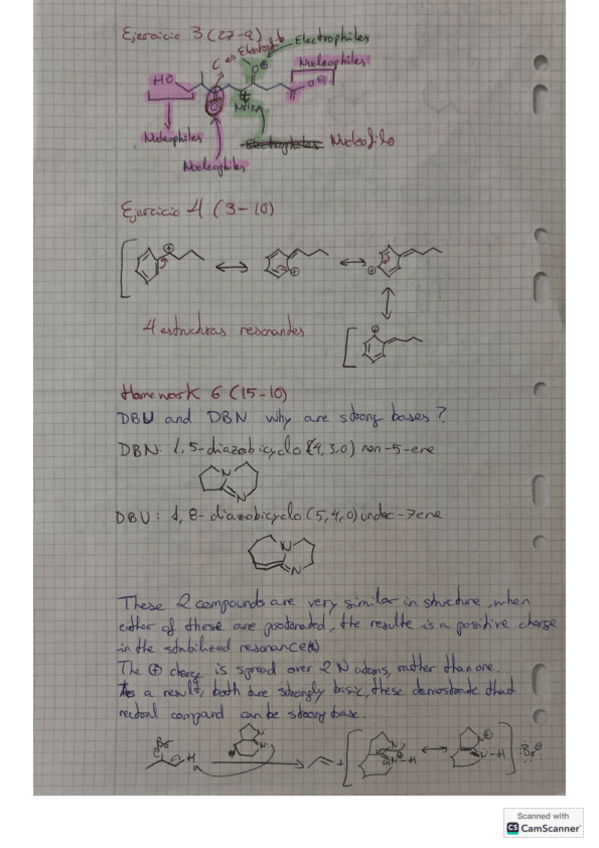 Ejercicio 3 (27-9)
Electrophiles
Nucleophiles
HO
C
O
NH2
O
Nucleophiles
Electrophiles Nucleofilo
Nucleophiles
Ejercicio 4 (3-10)
4 estructuras resonantes
Homework 6 (15-10)
DBU and DBN why are strong bases?
DBN: 1,5-diazobicyclo (4,3,0) non-5-ene
N
N
DBU: 1, 8- diazobicyclo (5,4,0) undec-7ene
N
N
These 2 compounds are very similar in structure, when
either of these are protonated, the resulte is a positive charge
in the stabiliead resonance
The ⊕ charge is spread over 2 N atoms, rather than one.
As a result, both are strongly basic, these demostrate that
neutral compand can be strong base.
Br
H
N
N
N-H
N
N-H
Br⊖
Scanned with
CS CamScanner